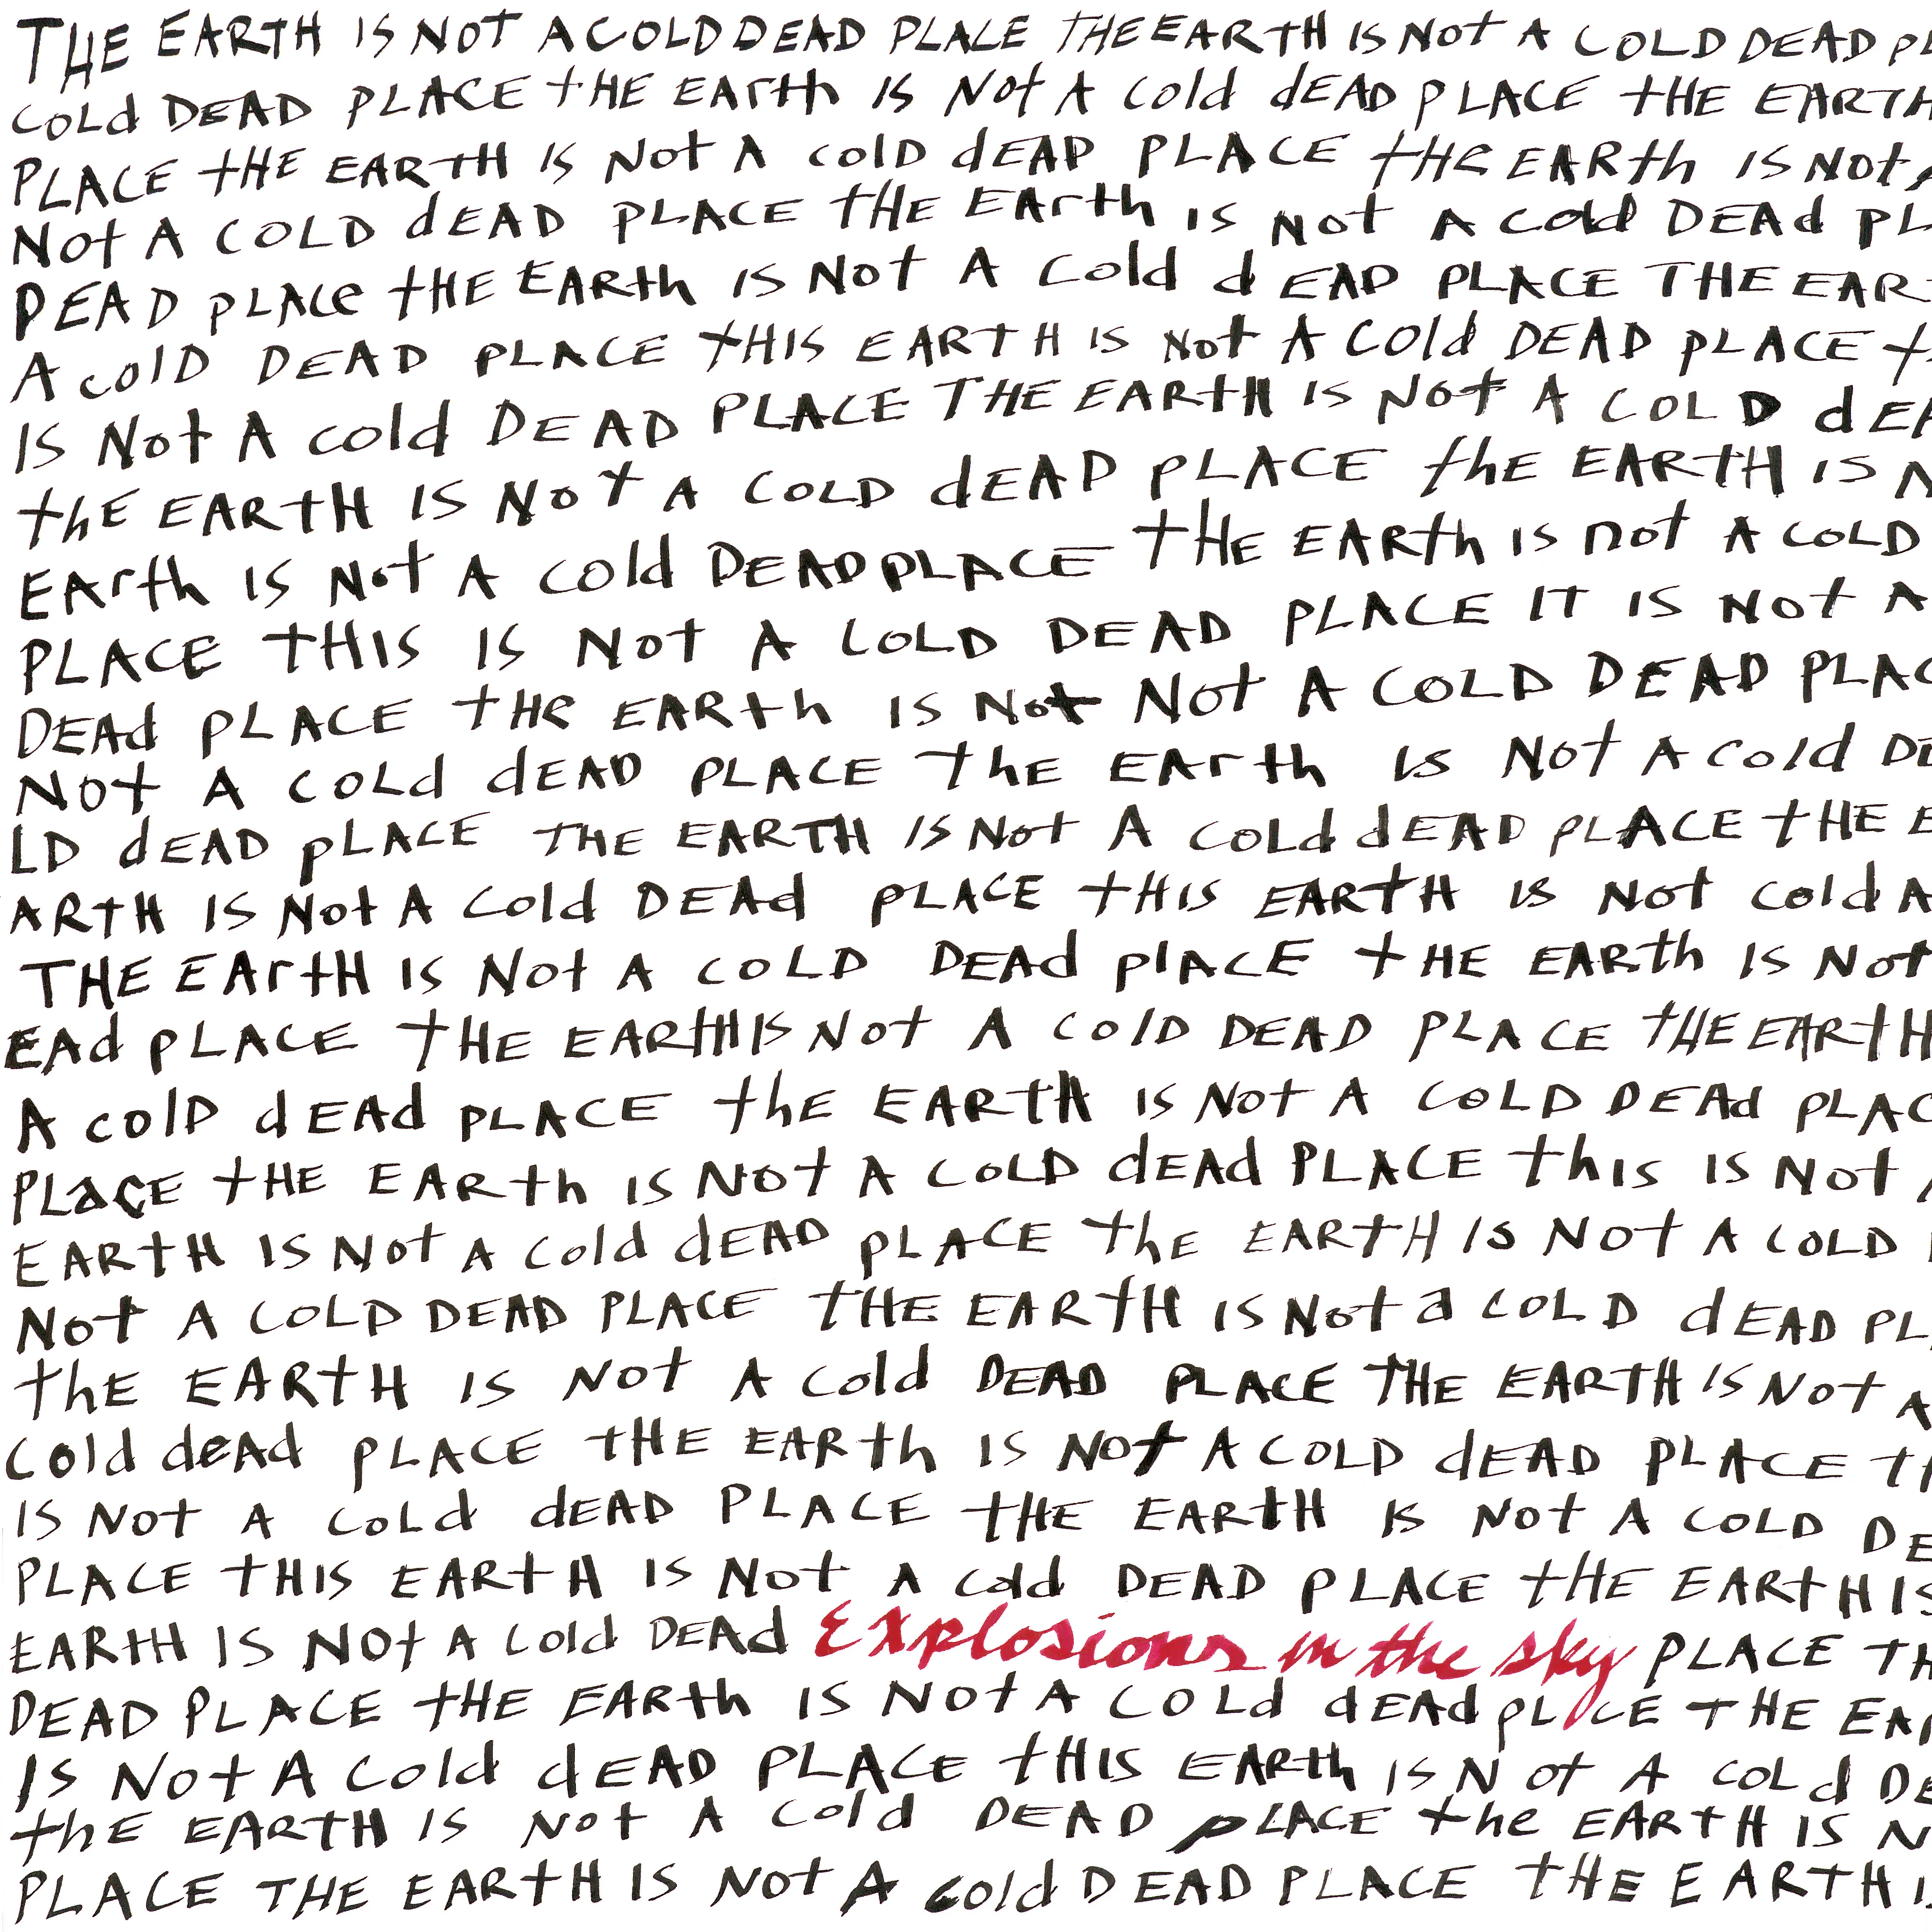 THE EARTH IS NOT A COLD DEAD PLACE THE EARTH IS NOT A COLD DEAD PL
COLd DEAD PLACE tHE EARth IS Not A Cold dEAD PLACE tHE EARTH
PLACE tHE EARTH IS Not A cold dEAD PLACE tHE EARth IS Not A
Not A COLD dEAD PLACE tHE EArth IS Not A Cold DEAd PL
DEAD pLACe tHE EARth IS Not A Cold dEAD PLACE THE EAR
A colD DEAD PLACE tHIS EARTH IS Not A Cold DEAD pLACE t
IS Not A cold DEAD PLACE THE EARtH IS Not A COLD dEA
thE EARtH IS Not A COLD dEAD pLACE thE EARTH IS N
EArth IS Not A cold DEAD PLACE tHE EARth IS not A COLD
PLACE tHIS IS Not A COLD DEAD PLACE IT IS Not A
DEAd pLACE tHe EARth IS Not Not A COLD DEAD PLAC
Not A COLd dEAD PLACE thE EArth Is Not A Cold DE
LD dEAD pLACE THE EARTH IS Not A COLd dEAD pLACE tHE E
ARtH IS Not A Cold DEAd PLACE tHIS EARtH IS Not Cold A
THE EArtH IS Not A COLD DEAd plACE tHE EARth IS Not
EAd pLACE tHE EARtH IS Not A ColD DEAD PLACE tHE EARtH
A colD dEAd PLACE thE EARtH IS Not A COLD DEAd PLAC
PLaCE tHE EARth IS Not A COLD dEAd PLACE thIS IS Not A
EARtH IS Not A Cold dEAD pLACE thE EARtH IS Not A COLD
Not A COLD DEAD PLACE tHE EARtH IS Not a COLD dEAD PL
thE EARtH IS Not A Cold DEAD PLACE THE EARTH IS Not A
Cold deAd PLACE tHE EARth IS Not A COLD dEAD PLACE tH
IS Not A COLd dEAD PLACE tHE EARtH IS Not A COLD DE
PLACE tHIS EARtH IS Not A Cold DEAD PLACE tHE EARtH IS
EARtH IS NOt A Cold DEAd Explosions in the sky PLACE TH
DEAD PLACE tHE EARth IS Not A COLd dEAd pLCE THE EA
IS Not A Cold dEAD PLACE tHIS EARth IS Not A COLd DE
thE EARTH IS Not A Cold DEAD pLACE the EARtH IS N
PLACE THE EARtH IS Not A Cold DEAD PLACE tHE EARTH I